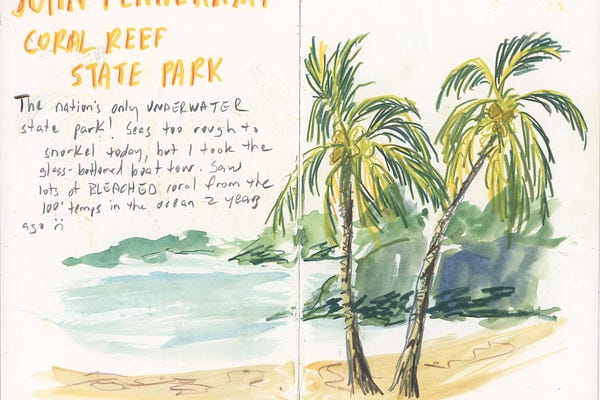 JOHN PENNEKAMP
CORAL REEF
STATE PARK
The nation's only UNDERWATER
state park! Seas too rough to
snorkel today, but I took the
glass-bottomed boat tour. Saw
lots of BLEACHED coral from the
100° temps in the ocean 2 years
ago :(